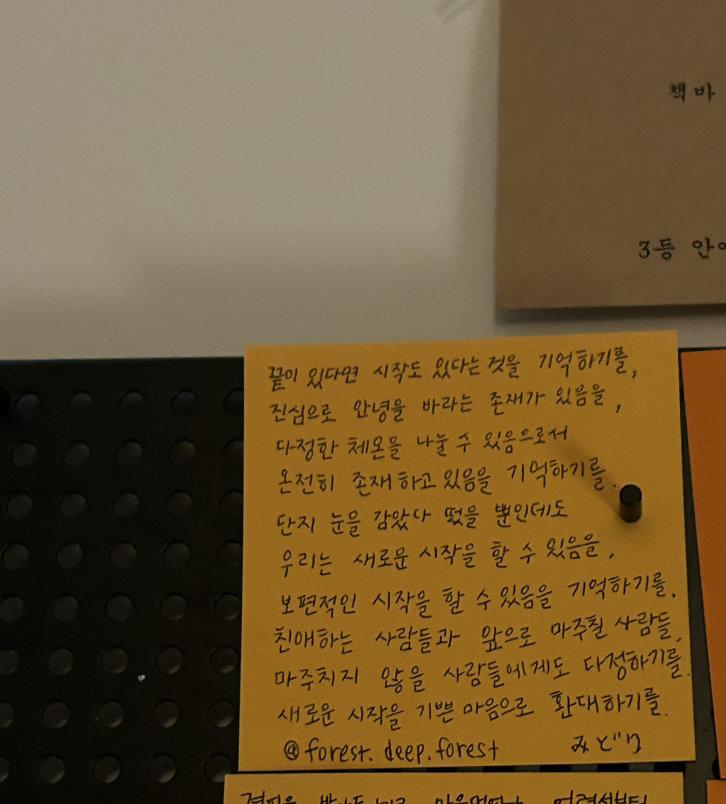 책바
3등 안
끝이 있다면 시작도 있다는 것을 기억하기를,
진심으로 안녕을 바라는 존재가 있음을,
다정한 체온을 나눌 수 있음으로서
온전히 존재하고 있음을 기억하기를.
단지 눈을 감았다 떴을 뿐인데도
우리는 새로운 시작을 할 수 있음을,
보편적인 시작을 할 수 있음을 기억하기를.
친애하는 사람들과 앞으로 마주칠 사람들,
마주치지 않을 사람들에게도 다정하기를.
새로운 시작을 기쁜 마음으로 환대하기를.
@forest.deep.forest みどり